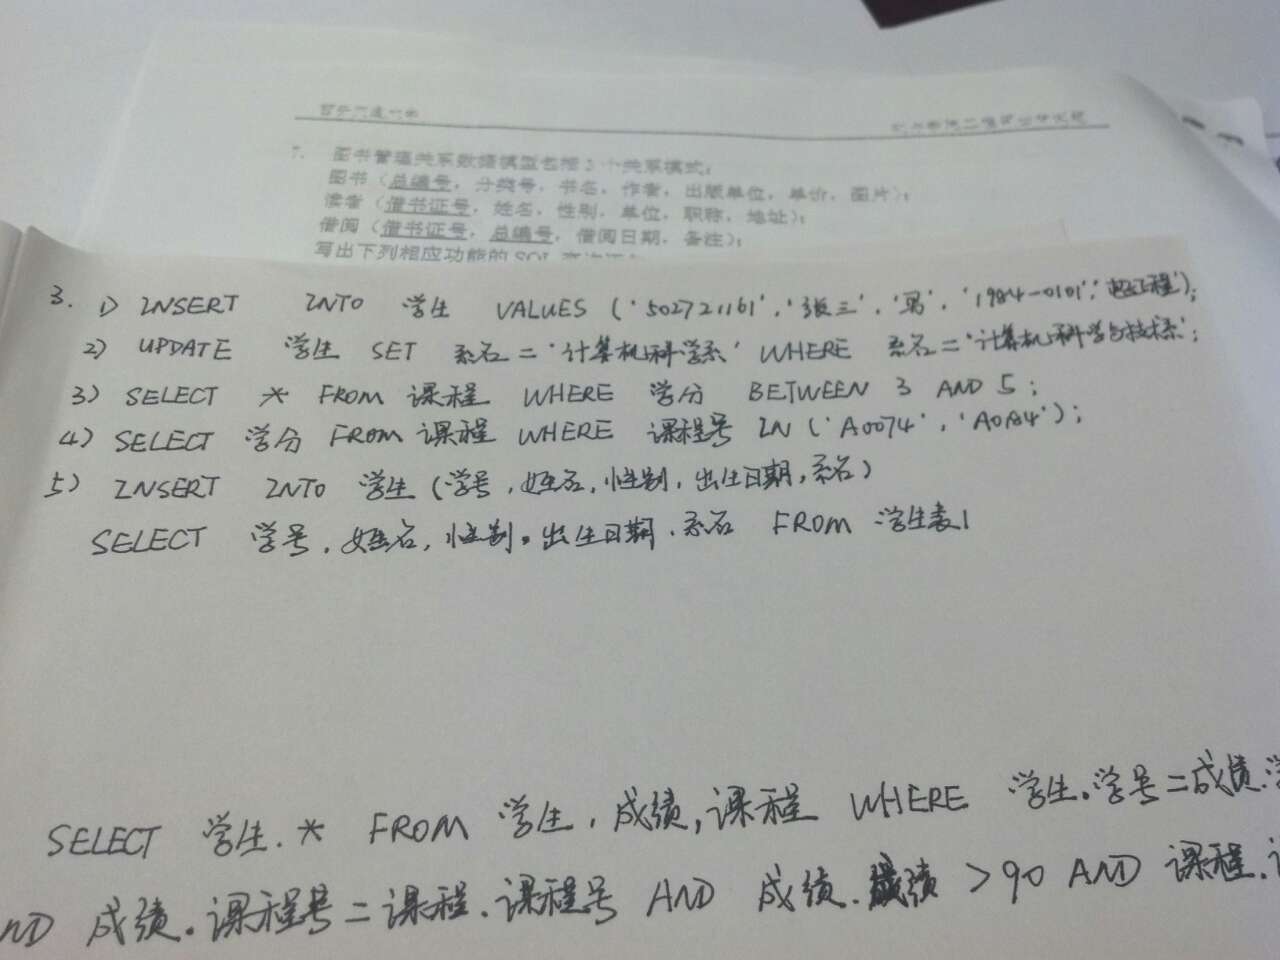 7. 图书管理关系数据模型包括3个关系模式：
图书（总编号，分类号，书名，作者，出版单位，单价，图片）；
读者（借书证号，姓名，性别，单位，职称，地址）；
借阅（借书证号，总编号，借阅日期，备注）；
写出下列相应功能的SQL
3. 1) INSERT INTO 学生 VALUES ('502721161','张三','男','1984-0101','电工程');
2) UPDATE 学生 SET 系名='计算机科学系' WHERE 系名='计算机科学与技术系';
3) SELECT * FROM 课程 WHERE 学分 BETWEEN 3 AND 5;
4) SELECT 学分 FROM 课程 WHERE 课程号 IN ('A0074','A0184');
5) INSERT INTO 学生 (学号,姓名,性别,出生日期,系名)
SELECT 学号,姓名,性别,出生日期,系名 FROM 学生表1
SELECT 学生.* FROM 学生,成绩,课程 WHERE 学生.学号=成绩.学
ND 成绩.课程号=课程.课程号 AND 成绩.成绩 >90 AND 课程.